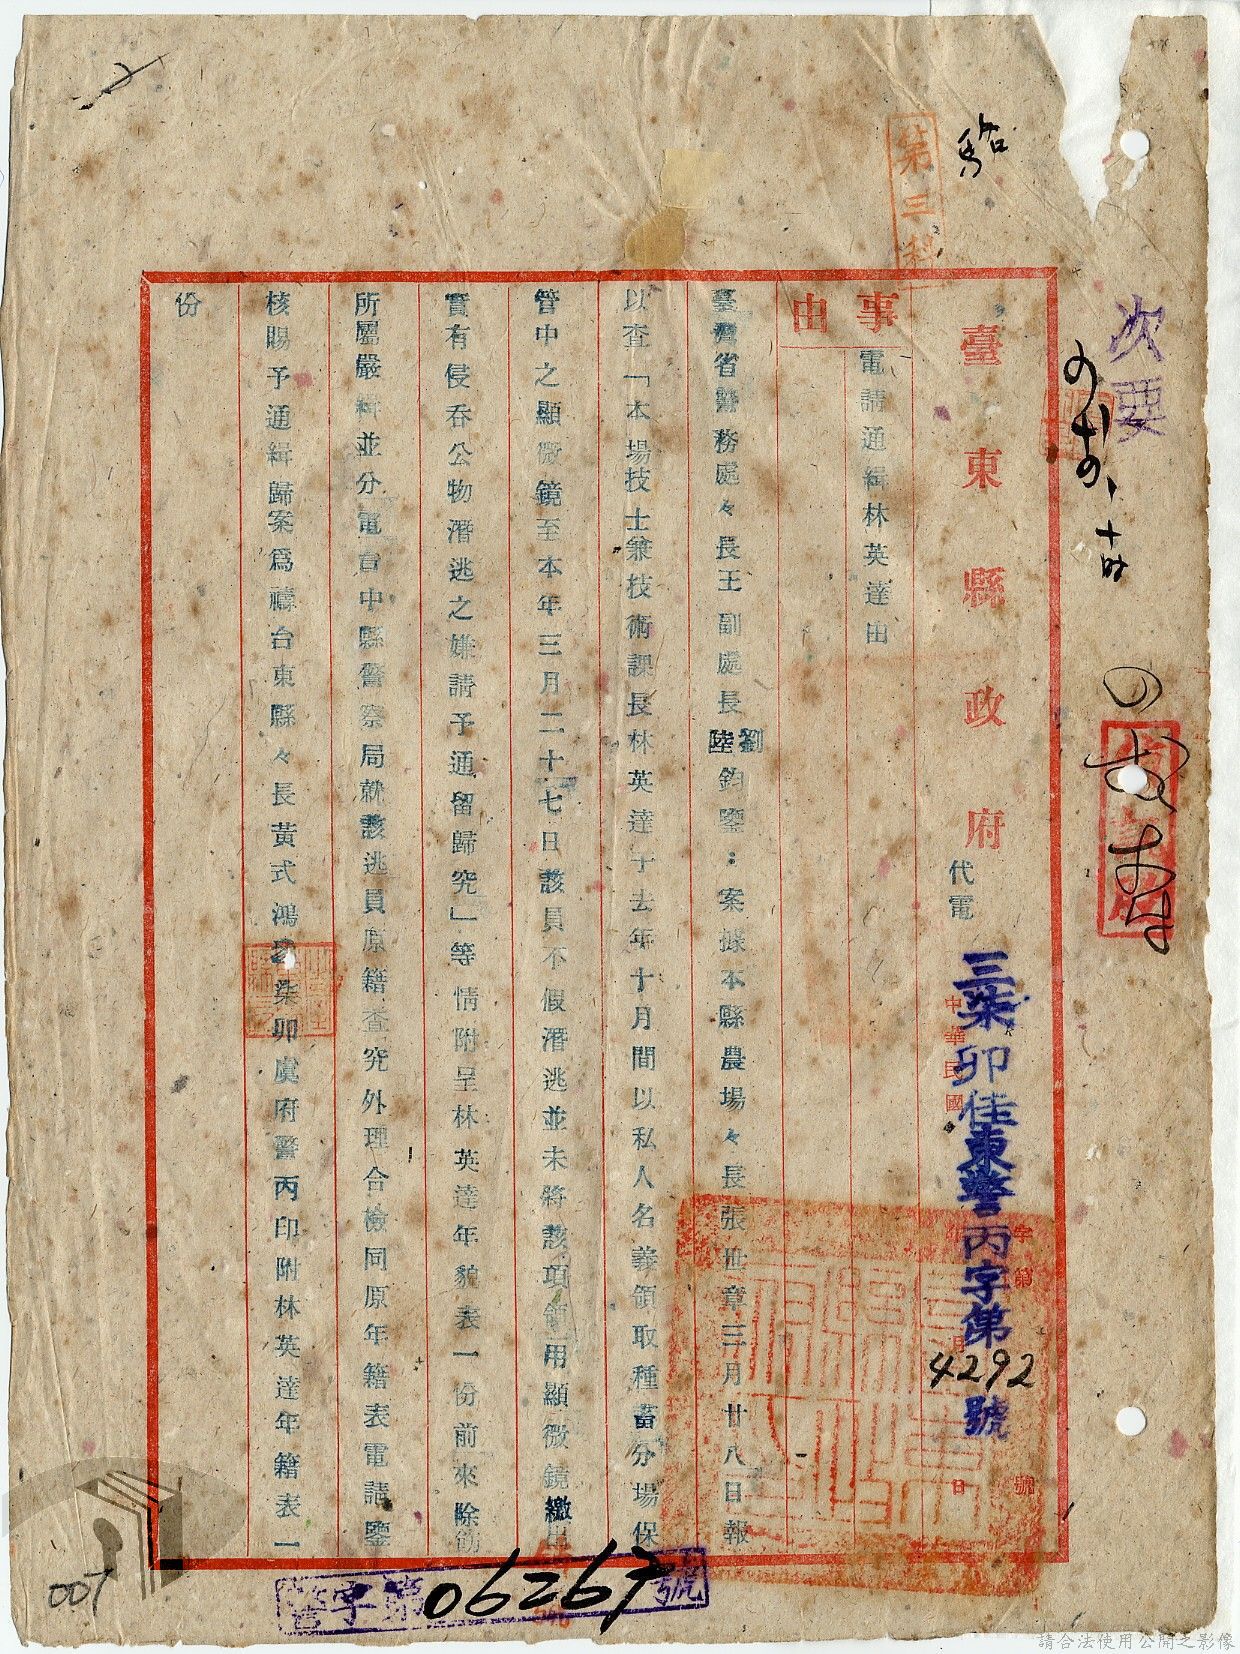 次要
第三科
臺東縣政府代電
三柒卯佳東警丙字第4292號
中華民國
事由
電請通緝林英達由
臺灣省警務處々長王副處長劉陸鈞鑒:案據本縣農場々長張世章三月廿八日報
以查「本場技士兼技術課長林英達于去年十月間以私人名義領取種畜分場保
管中之顯微鏡至本年三月二十七日該員不假潛逃並未將該項領用顯微鏡繳出
實有侵吞公物潛逃之嫌請予通留歸究」等情附呈林英達年貌表一份前來除飭
所屬嚴緝並分電台中縣警察局就該逃員原籍查究外理合檢同原年籍表電請鑒
核賜予通緝歸案為禱台東縣々長黃式鴻叁柒卯虞府警丙印附林英達年籍表一
份
字第06267號
007
請合法使用公開之影像